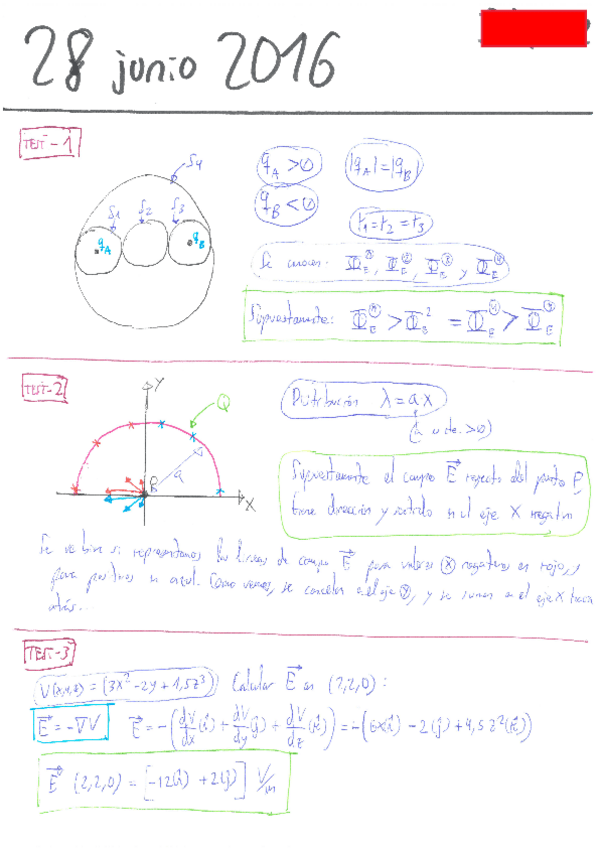 28 junio 2016
TEST-1
S4
S1 S2 S3
qA qB
qA > 0 |qA| = |qB|
qB < 0
r1 = r2 = r3
Se conocen: ΦE, ΦE, ΦE y ΦE
Supuestamente: ΦE > ΦE² = ΦE > ΦE
TEST-2
Y
Q
P
a
X
Distribución λ = a x
(a cte. > 0)
Supuestamente el campo E⃗ respecto del punto P
tiene dirección y sentido en el eje X negativo
Se ve bien si representamos las líneas de campo E⃗ para valores (X) negativos en rojo, y
para positivos en azul. Como vemos, se cancelan en el eje (Y), y se suman en el eje X hacia
atrás.
TEST-3
V(x,y,z) = (3x² - 2y + 1,5z³) Calcular E⃗ en (2,2,0):
E⃗ = -∇V E⃗ = -(dV/dx (i) + dV/dy (j) + dV/dz (k)) = -(6x(i) - 2(j) + 4,5z²(k))
E⃗ (2,2,0) = [-12(i) + 2(j)] V/m